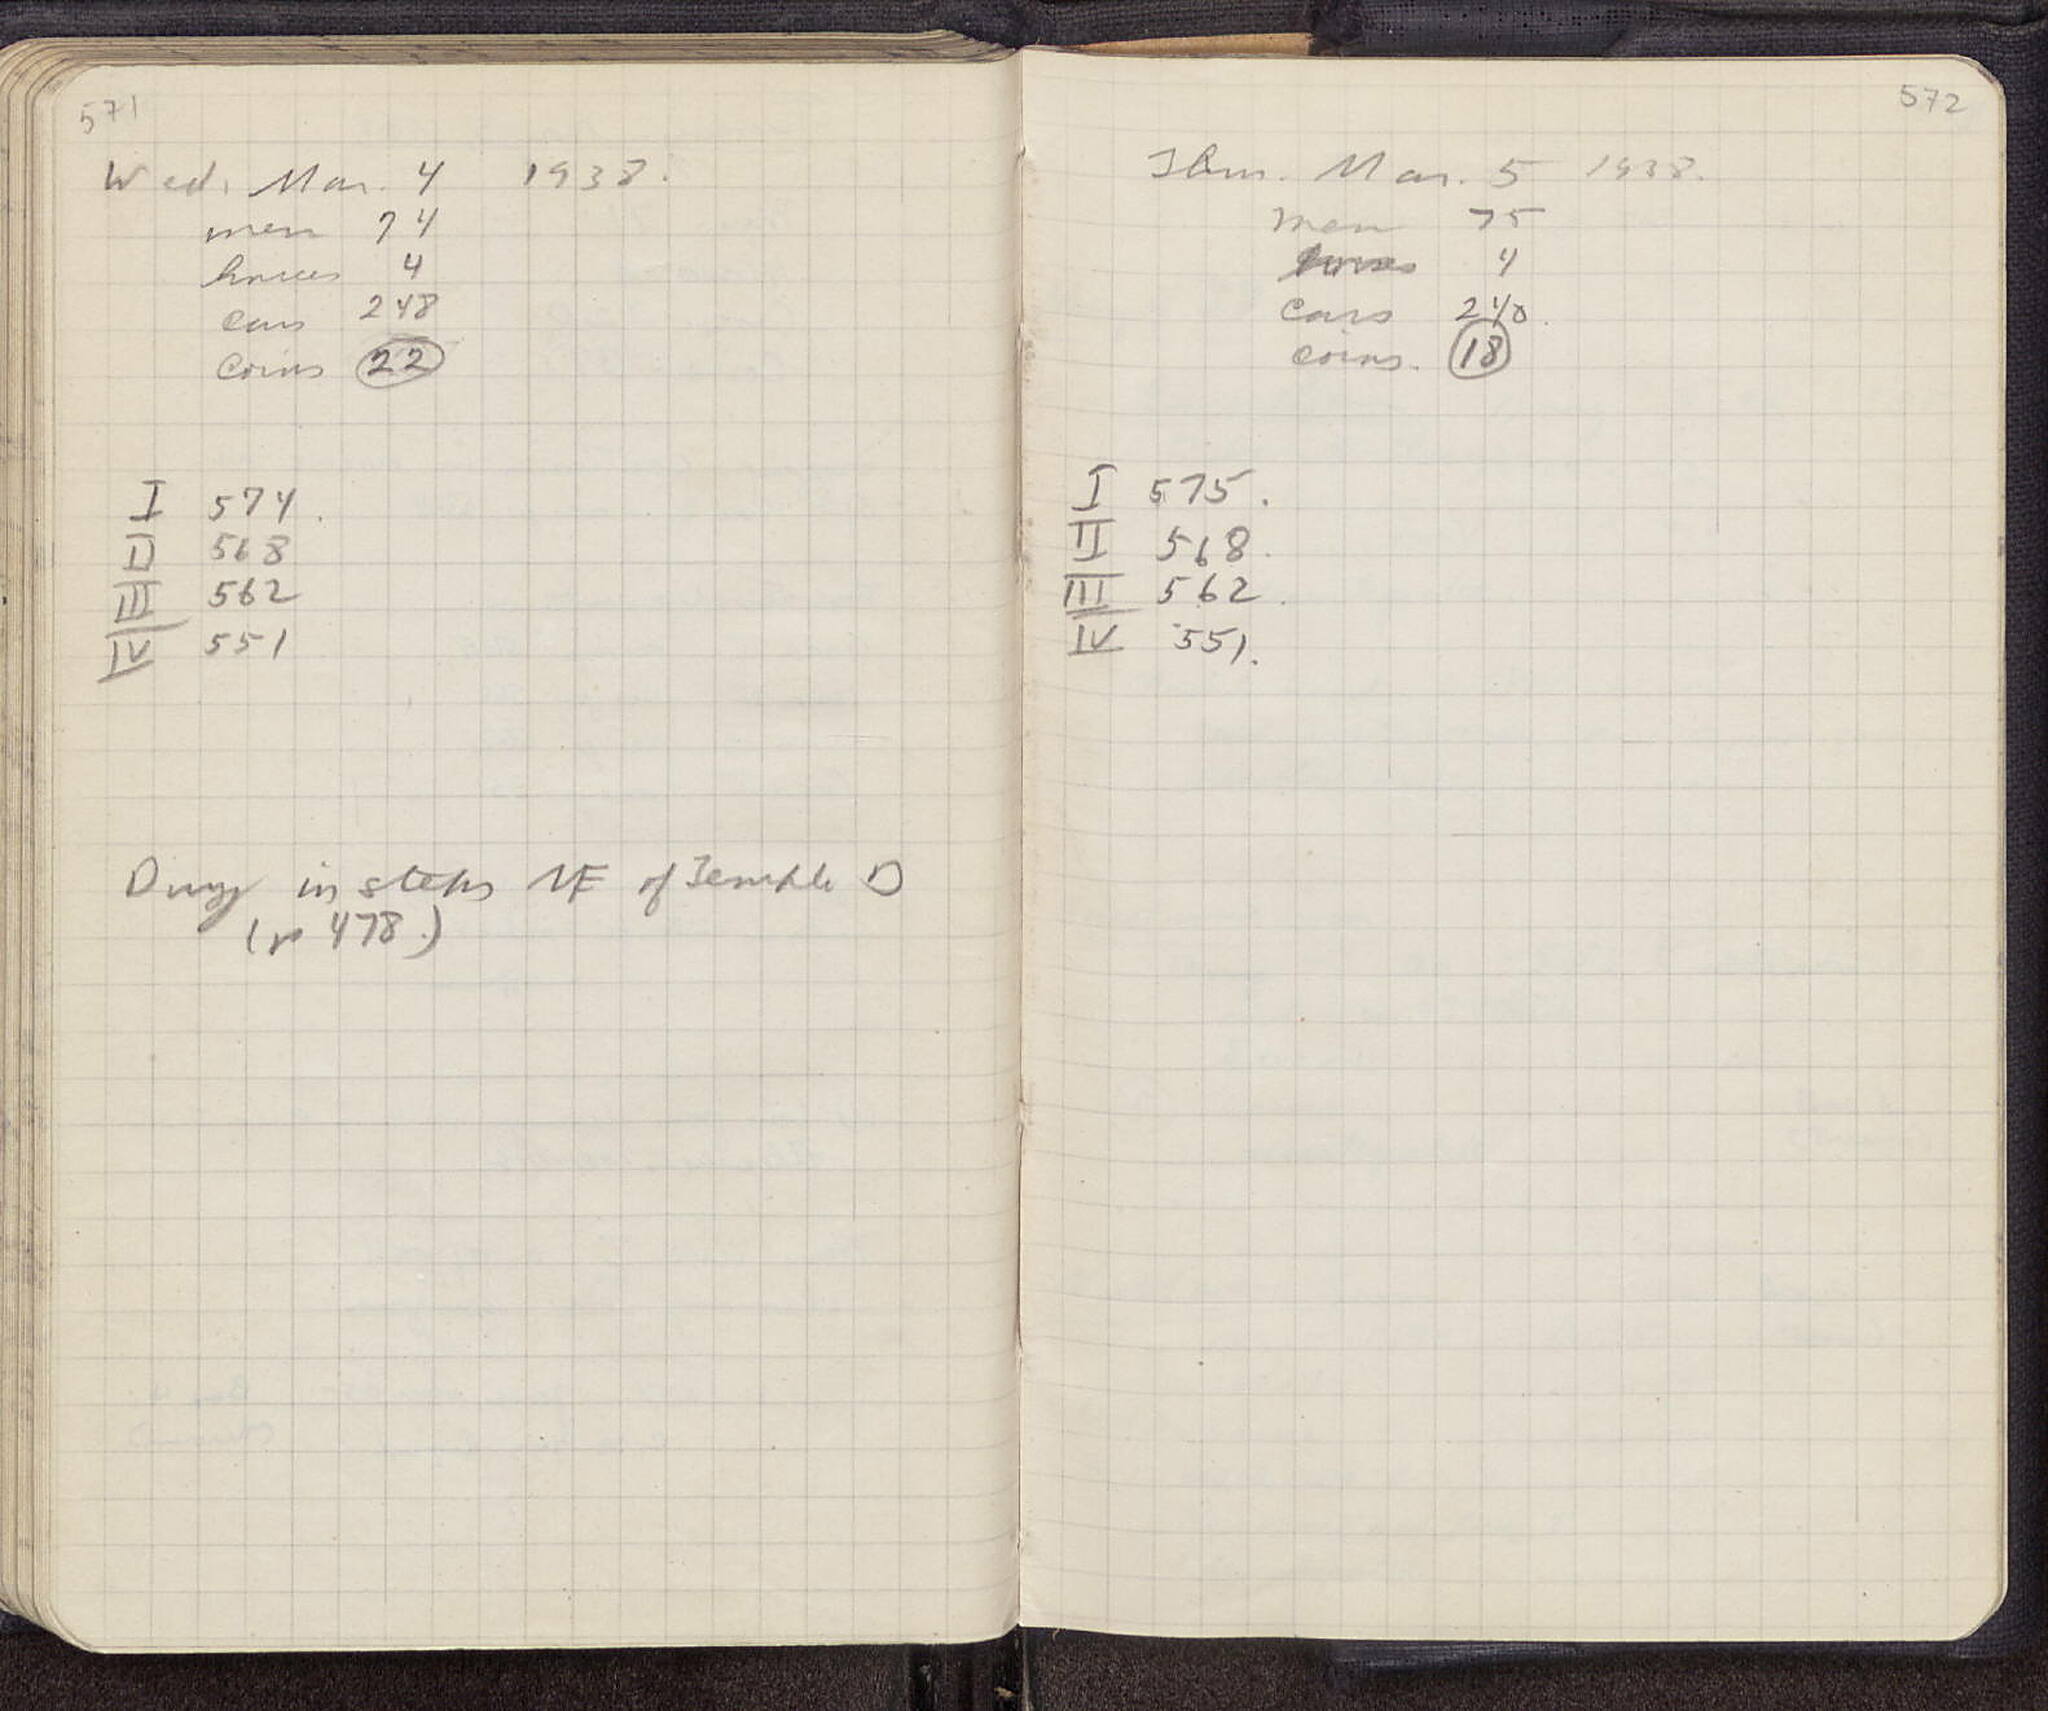 571
Wed. Mar. 4 1938.
men 74
horses 4
cars 248
coins 22
I 574.
II 568
III 562
IV 551
in steps NE of Temple D
(p 478.)
572
Thur. Mar. 5 1938.
men 75
horses 4
cars 240.
coins. 18
I 575.
II 568.
III 562.
IV 551.